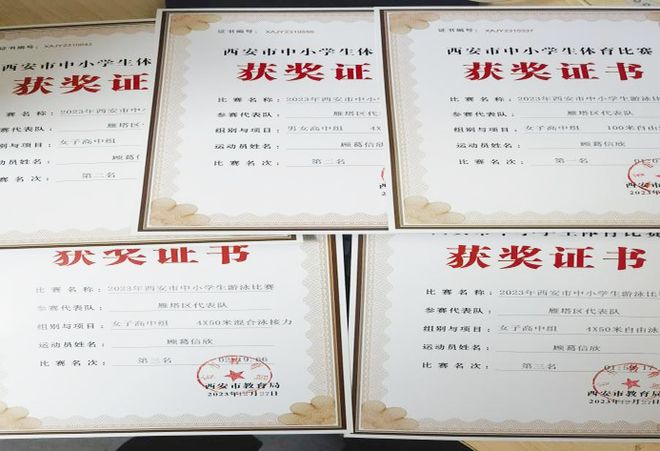 证书编号：XAJY2310562
西安市中小学生体
获奖证
比赛名称：2023年西安市中小
参赛代表队 雁塔区
组别与项目：女子高中组
运动员姓名 顾葛信
比赛名次： 第二名
证书编号：
西安市中小学生体
获奖证
比赛名称：2023年西安市中小
参赛代表队： 雁塔区代
组别与项目：男女高中组 4X
运动员姓名： 顾葛信欣
比赛名次： 第二名
证书编号：XAJY2310537
西安市中小学生体育比赛
获奖证书
比赛名称：2023年西安市中小学生游泳比
参赛代表队： 雁塔区代表队
组别与项目：女子高中组 100米自由
运动员姓名： 顾葛信欣
比赛名次： 第一名
西安市
获奖证书
比赛名称：2023年西安市中小学生游泳比赛
参赛代表队： 雁塔区代表队
组别与项目：女子高中组 4X50米混合泳接力
运动员姓名： 顾葛信欣
比赛名次： 第三名
西安市教育局
获奖证书
比赛名称：2023年西安市中小学生游泳比
参赛代表队： 雁塔区代表队
组别与项目：女子高中组 4X50米自由泳
运动员姓名： 顾葛信欣
比赛名次： 第三名
西安市教育局